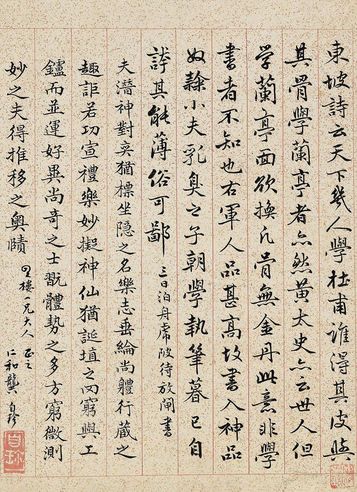 東坡詩云天下幾人學杜甫誰得其皮與
其骨學蘭亭者亦然黃太史亦云世人但
學蘭亭面欲換凡骨無金丹此意非學
書者不知也右軍人品甚高故書入神品
奴隸小夫乳臭之子朝學執筆暮已自
誇其能薄俗可鄙 三日泊舟虎陂待放閘書
夫潛神對奕猶標坐隱之名樂志垂綸尚體行藏之
趣詎若功宣禮樂妙擬神仙猶誕埴之罔窮與工
鑪而並運好異尚奇之士翫體勢之多方窮微測
妙之夫得推移之奧賾
樓一兄大人 正之
仁和龔自珍
自珍